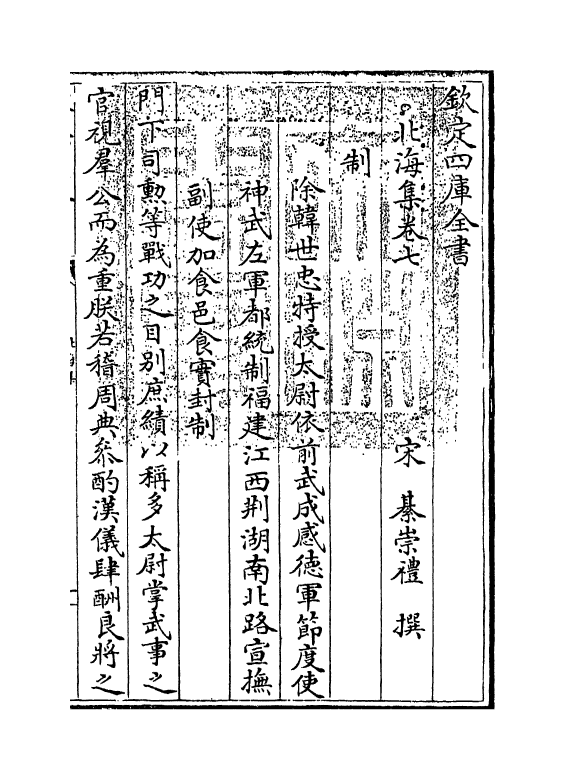 欽定四庫全書
北海集卷七
宋 綦崇禮 撰
制
除韓世忠特授太尉依前武成感德軍節度使
神武左軍都統制福建江西荆湖南北路宣撫
副使加食邑食實封制
門下司勲等戰功之目别庶績以稱多太尉掌武事之
官視羣公而為重朕若稽周典叅酌漢儀肆酬良將之